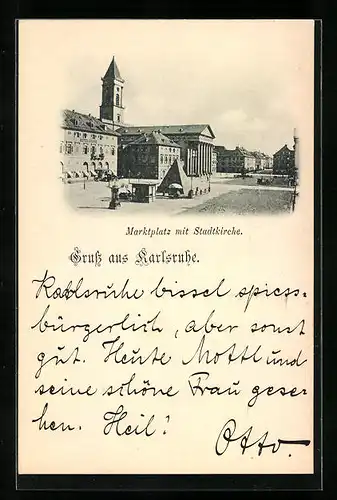 Marktplatz mit Stadtkirche.
Gruß aus Karlsruhe.
Karlsruhe bissel spiess-
bürgerlich, aber sonst
gut. Heute Mottl und
seine schöne Frau gese-
hen. Heil!
Otto.